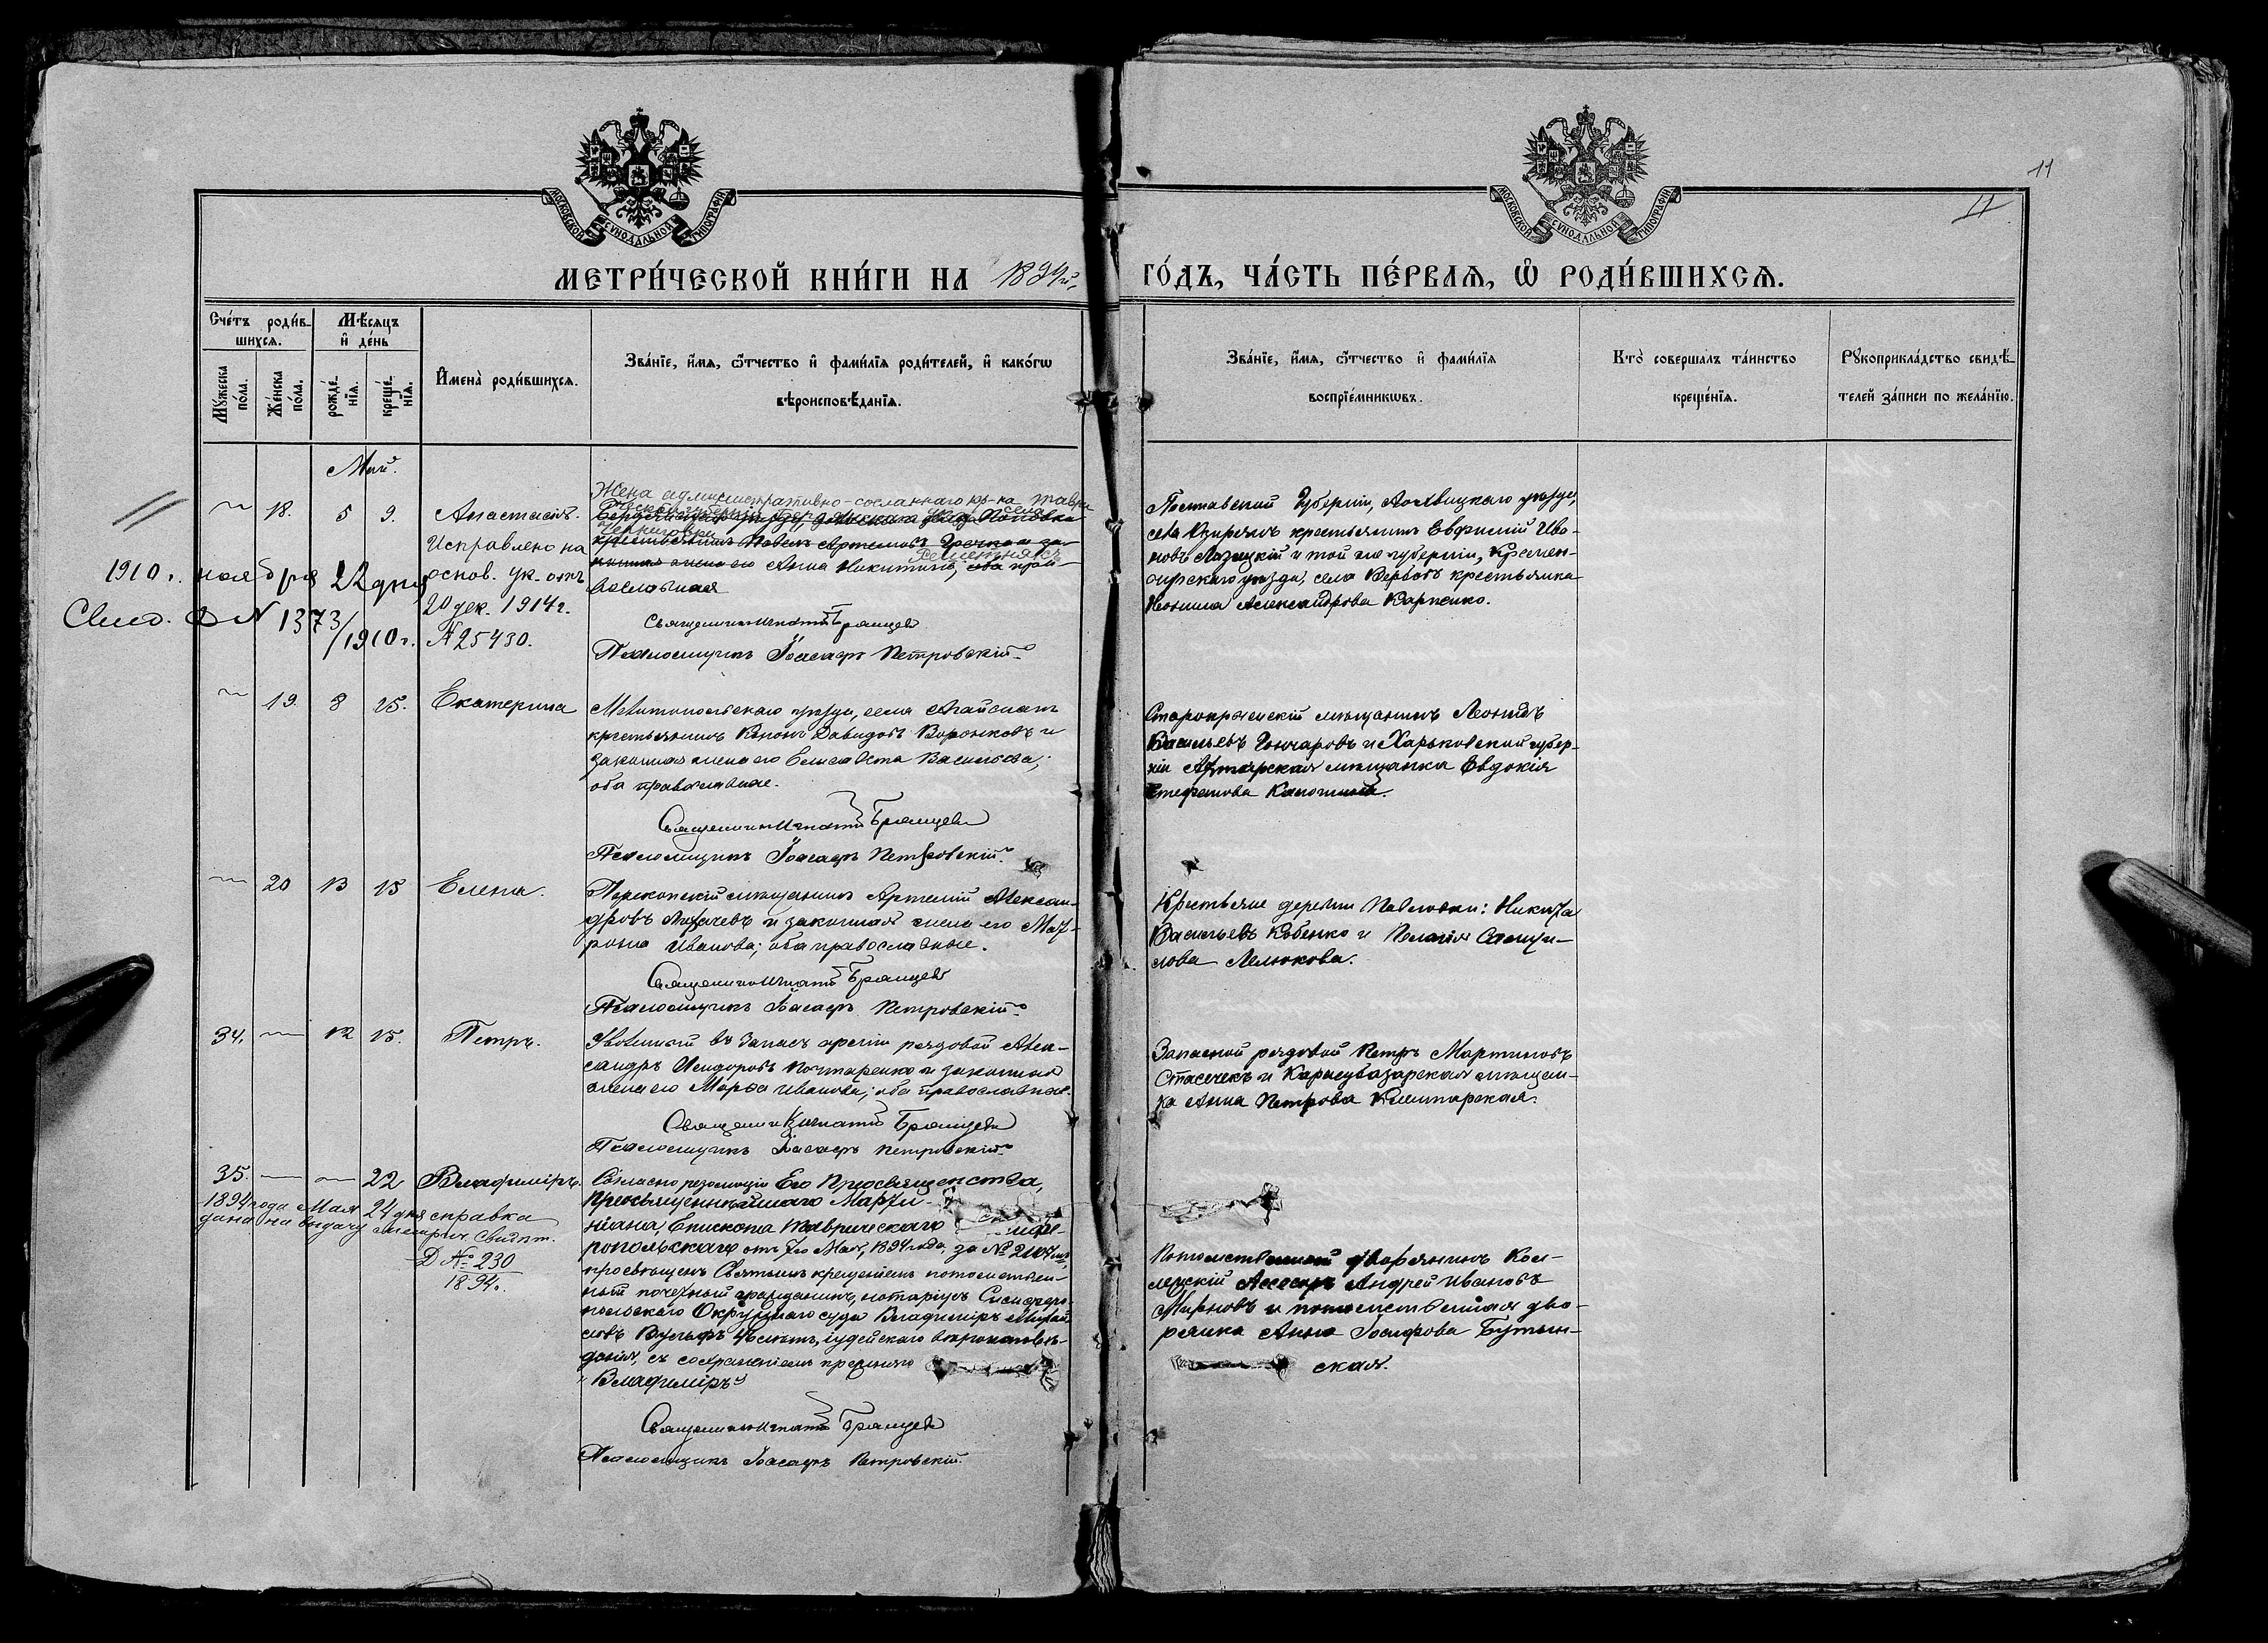 11
11
МОСКОВСКОЙ СѴНОДАЛЬНОЙ ТИПОГРАФІИ
МОСКОВСКОЙ СѴНОДАЛЬНОЙ ТИПОГРАФІИ
МЕТРИ́ЧЕСКОЙ КНИ́ГИ НА 1894й
ГО́ДЪ, ЧА́СТЬ ПЕ́РВАѦ, Ѡ҆ РОДИ́ВШИХСѦ.
Сче́тъ роди́в-
шихсѧ.
Мѣ́сѧцъ
и҆ де́нь
Мꙋ́жеска
по́ла.
Же́нска
по́ла.
рожде́-
нїѧ.
креще́-
нїѧ.
И҆мена̀ роди́вшихсѧ.
Зва́нїе, и҆́мѧ, ѻ҆́тчество и҆ фами́лїѧ роди́телей, и҆ како́гѡ
вѣроисповѣ́данїѧ.
Зва́нїе, и҆́мѧ, ѻ҆́тчество и҆ фами́лїѧ
воспрїе́мникѡвъ.
Кто̀ соверша́лъ та́инство
креще́нїѧ.
Рꙋкоприкла́дство свидѣ́-
телей за́писи по жела́нїю.
Май.
18. 5 9. Анастасія.
Исправлено на
основ. ук. отъ
20 дек. 1914 г.
№ 25430.
1910 г. ноября 22 дня
Свид. № 1373/1910 г.
Жена административно-сосланнаго кр-на Таври
ческой губерніи Бердянскаго уѣзда села
крестьянинъ Павелъ Артемовъ Гречко и за-
конная жена его Анна Никитина, оба пра-
вославная
Священникъ Игнатій Бранцевъ
Псаломщикъ Іоасафъ Петровскій
Полтавской губерніи, Лохвицкаго уѣзда,
села крестьянинъ Евфимій Ива-
новъ и той же губерніи, Кремен-
чугскаго уѣзда, села крестьянка
Александрова Карпенко.
19. 8 15. Екатерина
Мелитопольскаго уѣзда, села
крестьянинъ Давидовъ Воронковъ и
законная жена его Елисавета Васильева;
оба православные.
Священникъ Игнатій Бранцевъ
Псаломщикъ Іоасафъ Петровскій
Старокрымскій мѣщанинъ Леонидъ
Васильевъ Гончаровъ и Харьковской губер-
ніи Ахтырская мѣщанка Евдокія
Стефанова
20 13 15 Елена.
Перекопскій мѣщанинъ Артемій Алексан-
дровъ и законная жена его Мат-
рона Иванова; оба православные.
Священникъ Игнатій Бранцевъ
Псаломщикъ Іоасафъ Петровскій
Крестьяне деревни Павловки: Никита
Васильевъ и Пелагія Самуи-
лова
34. 12 15. Петръ.
Уволенный въ запасъ арміи рядовой Алек-
сандръ Исидоровъ Почтаренко и законная
жена его Марѳа Иванова; оба православные.
Священникъ Игнатій Бранцевъ
Псаломщикъ Іоасафъ Петровскій
Запасной рядовой Петръ Мартиновъ
Стасечекъ и Карасубазарская мѣщан-
ка Анна Петрова
35. 22 Владиміръ.
1894 года Мая 24 дня справка
дана на выдачу метрич. свидѣт.
№ 230
1894.
Согласно резолюціи Его Преосвященства,
Преосвященнѣйшаго Марти-
ніана, Епископа Таврическаго и Симфе-
ропольскаго отъ 7го Мая, 1894 года, за №
просвѣщенъ Святымъ крещеніемъ потомствен-
ный почетный гражданинъ, нотаріусъ Симферо-
польскаго Окружнаго суда Владиміръ
іудейскаго вѣроисповѣ-
данія, съ сохраненіемъ прежняго
"Владиміръ"
Священникъ Игнатій Бранцевъ
Псаломщикъ Іоасафъ Петровскій.
Потомственный дворянинъ Кол-
лежскій Ассесоръ Андрей Ивановъ
Мироновъ и потомственная дво-
рянка Анна Іосифова Бутын-
ская.